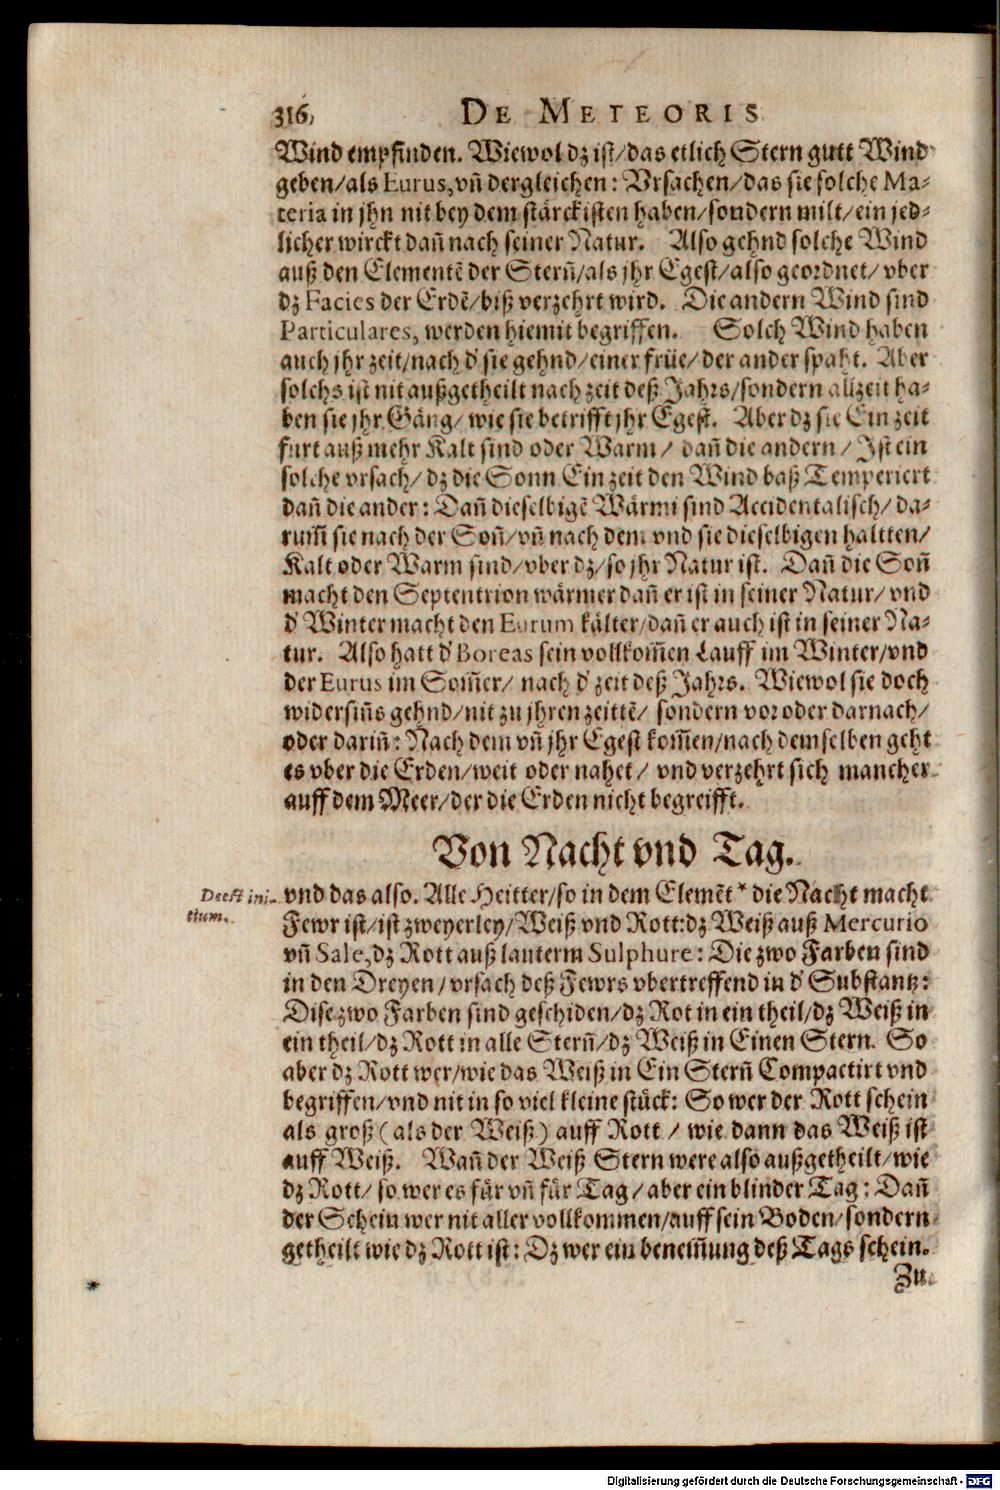 316,
DE METEORIS
Wind empfinden. Wiewol dz ist/das etlich Stern gutt Wind
geben/als Eurus,vñ dergleichen: Vrsachen/das sie solche Ma-
teria in jhn nit bey dem stärckisten haben/sondern milt/ein jed-
licher wirckt dañ nach seiner Natur. Also gehnd solche Wind
auß den Elementẽ der Sterñ/als jhr Egest/also geordnet/vber
dz Facies der Erdẽ/biß verzehrt wird. Die andern Wind sind
Particulares, werden hiemit begriffen. Solch Wind haben
auch jhr zeit/nach d' sie gehnd/einer früe/der ander spaht. Aber
solchs ist nit außgetheilt nach zeit deß Jahrs/sondern allzeit ha-
ben sie jhr Gäng/wie sie betrifft jhr Egest. Aber dz sie Ein zeit
furt auß mehr Kalt sind oder Warm/ dañ die andern/ Ist ein
solche vrsach/ dz die Sonn Ein zeit den Wind baß Temperiert
dañ die ander: Dañ dieselbigẽ Wärmi sind Accidentalisch/ da-
rum̃ sie nach der Soñ/vñ nach dem vnd sie dieselbigen haltten/
Kalt oder Warm sind/vber dz/so jhr Natur ist. Dañ die Soñ
macht den Septentrion wärmer dañ er ist in seiner Natur/vnd
d' Winter macht den Eurum kälter/dañ er auch ist in seiner Na-
tur. Also hatt d' Boreas sein vollkom̃en Lauff im Winter/vnd
der Eurus im Som̃er/ nach d' zeit deß Jahrs. Wiewol sie doch
widersiñs gehnd/nit zu jhren zeittẽ/ sondern vor oder darnach/
oder dariñ: Nach dem vñ jhr Egest kom̃en/nach demselben geht
es vber die Erden/weit oder nahet/ vnd verzehrt sich mancher
auff dem Meer/der die Erden nicht begreifft.
Von Nacht vnd Tag.
Deest ini-
tium.
vnd das also. Alle Heitter/so in dem Elemẽt* die Nacht macht
Fewr ist/ist zweyerley/Weiß vnd Rott:dz Weiß auß Mercurio
vñ Sale,dz Rott auß lauterm Sulphure: Die zwo Farben sind
in den Dreyen/vrsach deß Fewrs vbertreffend in d' Substantz:
Dise zwo Farben sind geschiden/dz Rot in ein theil/dz Weiß in
ein theil/dz Rott in alle Sterñ/dz Weiß in Einen Stern. So
aber dz Rott wer/wie das Weiß in Ein Sterñ Compactirt vnd
begriffen/vnd nit in so viel kleine stück: So wer der Rott schein
als groß (als der Weiß) auff Rott/ wie dann das Weiß ist
auff Weiß. Wañ der Weiß Stern were also außgetheilt/wie
dz Rott/ so wer es für vñ für Tag/aber ein blinder Tag: Dañ
der Schein wer nit aller vollkommen/auff sein Boden/sondern
getheilt wie dz Rott ist: Dz wer ein benem̃ung deß Tags schein.
Zu
*
Digitalisierung gefördert durch die Deutsche Forschungsgemeinschaft - DFG